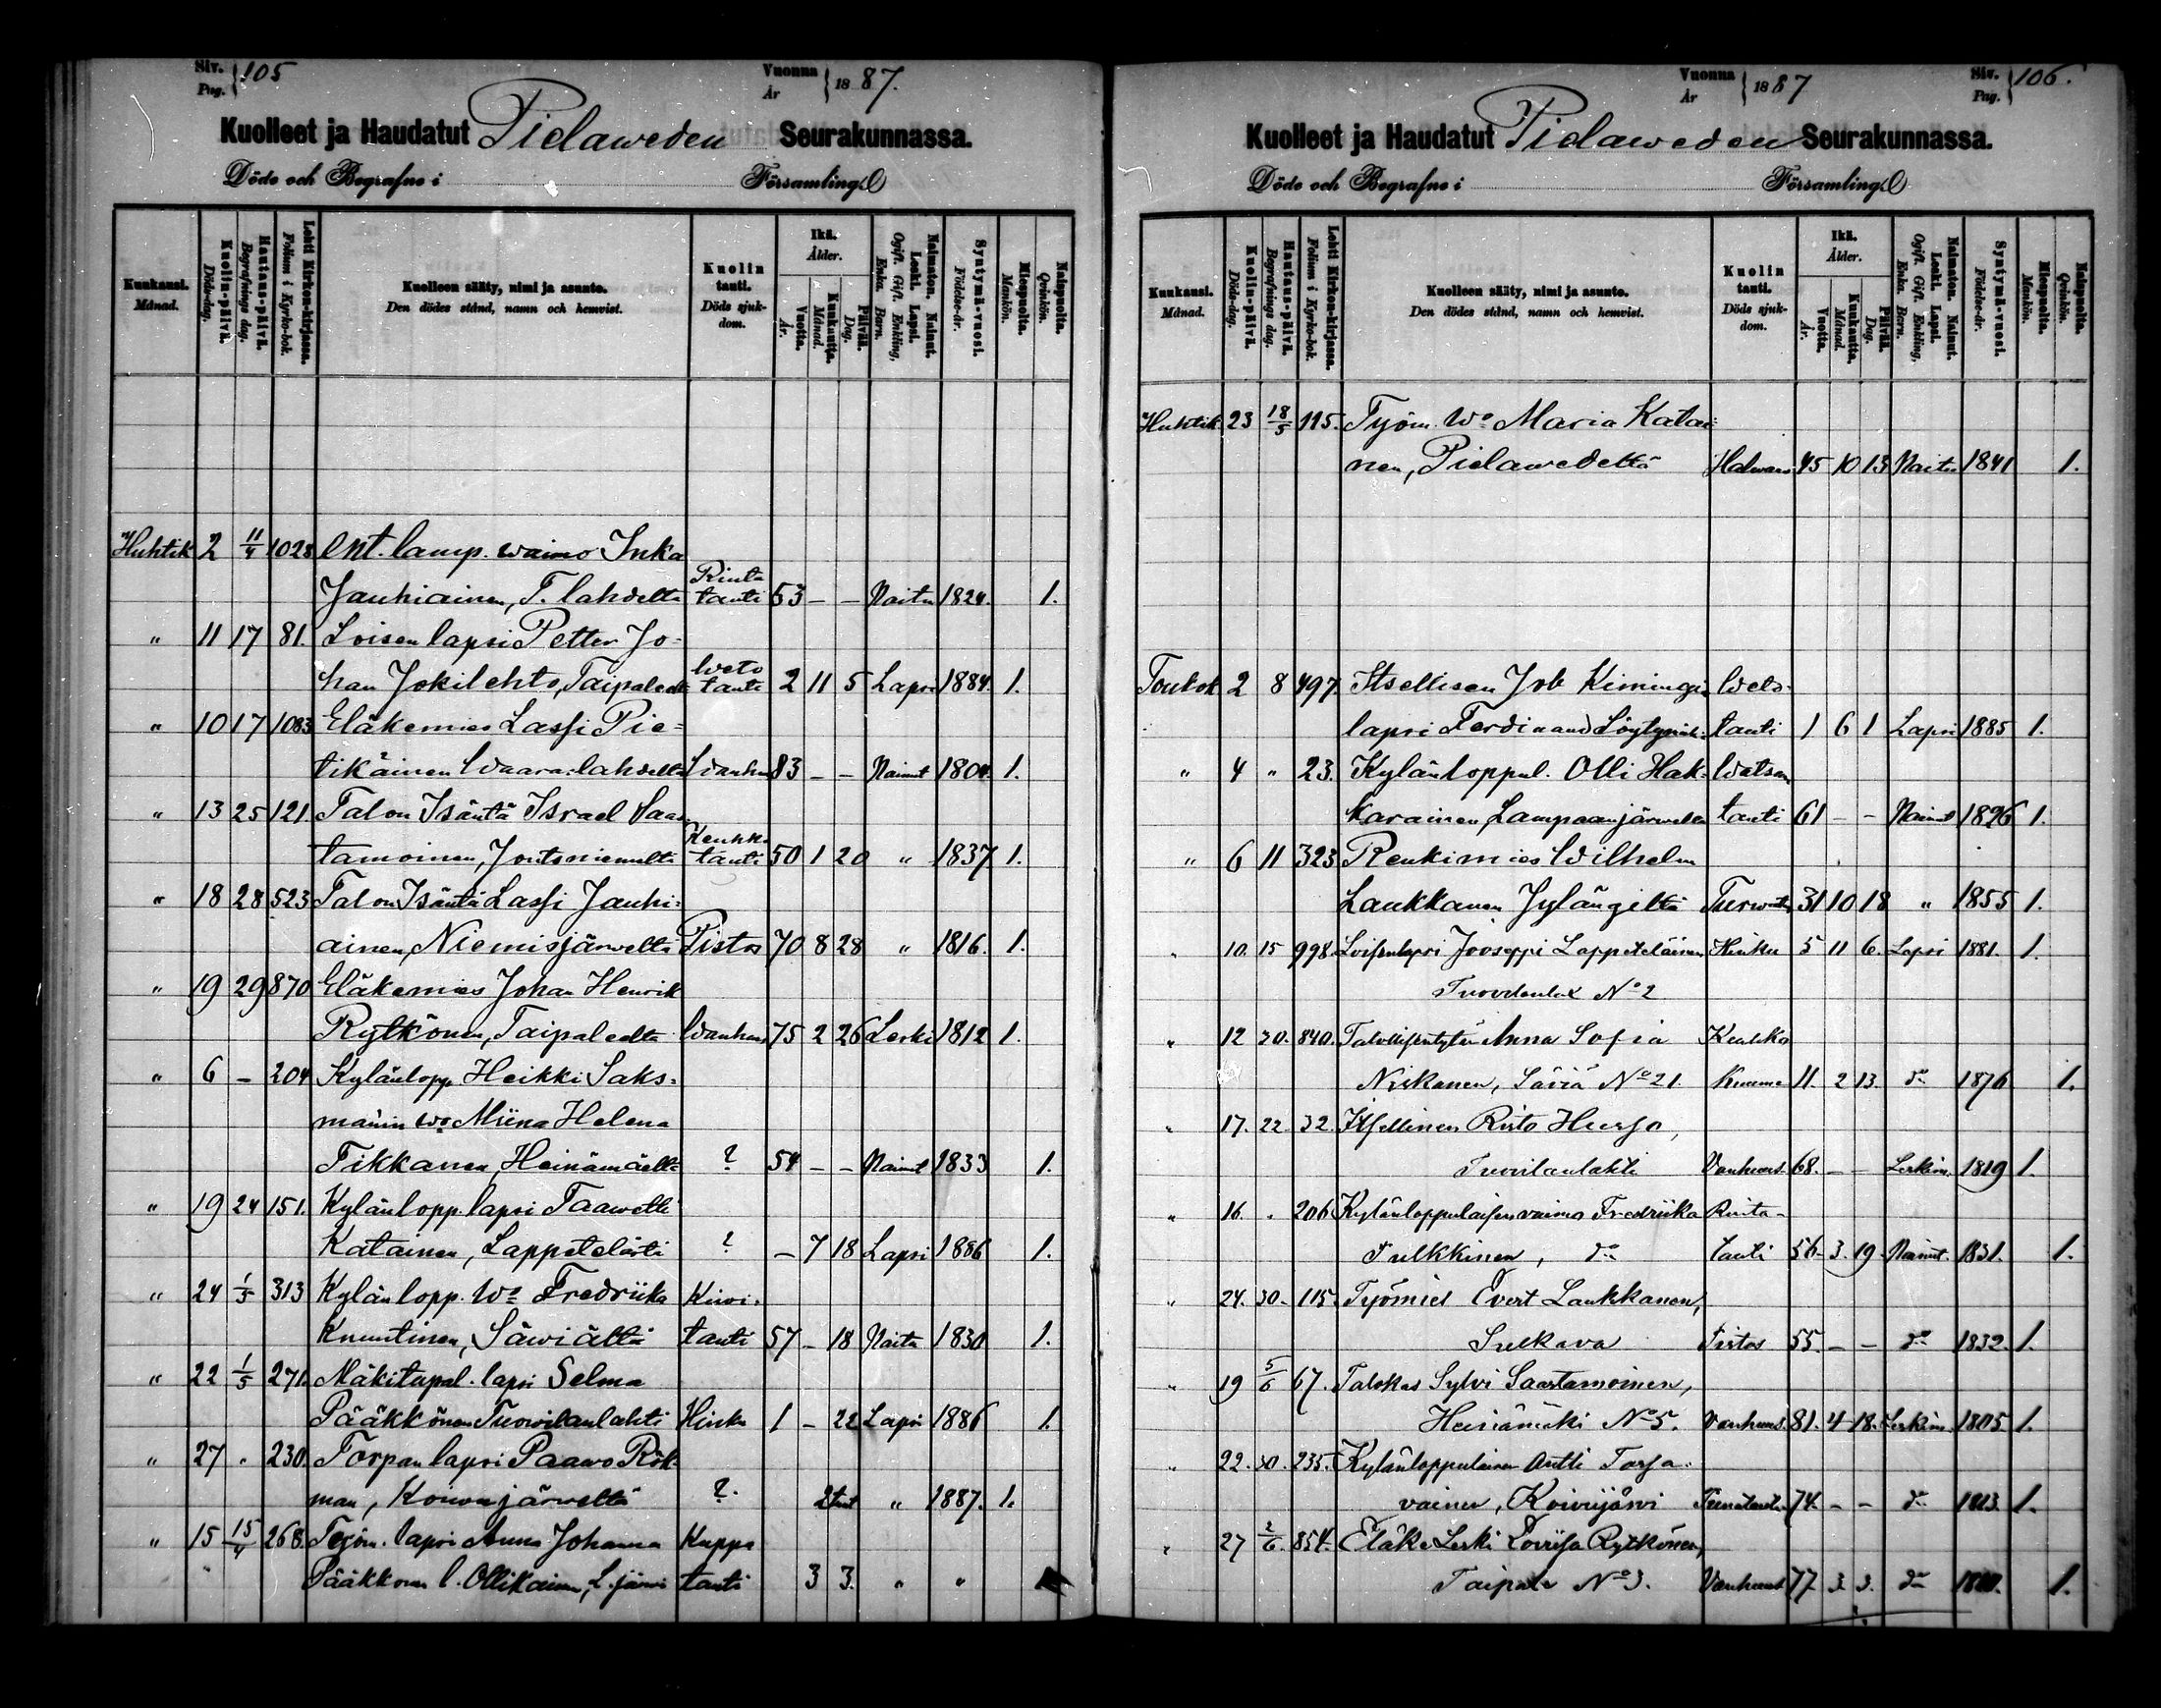 Siv. Pag. 105
Vuonna År 1887.
Kuolleet ja Haudatut Pielaweden Seurakunnassa.
Döde och Begrafne i Församling
Kuukausi. Månad.
Kuolin-päivä. Döds-dag.
Hautaus-päivä. Begrafnings dag.
Lehti Kirkon-kirjassa. Folium i Kyrko-bok.
Kuolleen sääty, nimi ja asunto. Den dödes stånd, namn och hemvist.
Kuolin tauti. Döds sjuk-dom.
Ikä. Ålder.
Vuotta. År.
Kuukautta. Månad.
Päivää. Dag.
Naimaton. Nainut. Leski. Lapsi. Ogift. Gift. Enkling, Enka. Barn.
Syntymä-vuosi. Födelse-år.
Miespuolta. Mankön.
Naispuolta. Qvinkön.
Huhtik 2 11/4 1028 Ent. lamp. waimo Inka
Jauhiainen, T. lahdelta Rinta tauti 53 – – Naitu 1824. 1.
" 11 17 81. Loisen lapsi Petter Jo=
han Jokilehto, Taipaleelta Weto tauti 2 11 5 Lapsi 1884. 1.
" 10 17 1083 Eläkemies Lassi Pie=
tikäinen Waaralahdelta Wanhuus 83 – – Nainut 1804. 1.
" 13 25 121 Talon Isäntä Israel Saas
tamoinen, Joutsniemeltä Keuhko tauti 50 1 20 " 1837 1.
" 18 28 523 Talon Isäntä Lassi Jauhi=
ainen, Niemisjärweltä Pistos 70 8 28 " 1816. 1.
" 19 29 870 Eläkemies Johan Henrik
Rytkönen, Taipaleelta Wanhuus 75 2 26 Leski 1812 1.
" 6 – 204 Kylänlopp. Heikki Saks=
männ wo Miina Helena
Tikkanen, Heinämäeltä ? 54 – – Nainut 1833 1.
" 19 24 151. Kylänlopp. lapsi Taawetti
Katainen, Lappetelästi ? – 7 18 Lapsi 1886 1.
" 24 1/5 313 Kylänlopp. Wo Fredriika Kiwi=
Knuutinen, Säwiältä tauti 57 – 18 Naitu 1830 1.
" 22 1/5 271. Mäkitupal. lapsi Selma
Pääkkönen Tuowilanlahti Hinku 1 – 22 Lapsi 1886 1.
" 27 " 230. Torpan lapsi Paawo Rök=
man, Koiwujärweltä ? 2 tunt " 1887. 1.
" 15 15/4 268. Työm. lapsi Anna Johanna Kuppa
Pääkkönen l. Ollikainen, L. järwi tauti 3 3. " "
Vuonna År 1887
Siv. Pag. 106.
Kuolleet ja Haudatut Pielaweden Seurakunnassa.
Döde och Begrafne i Församling
Kuukausi. Månad.
Kuolin-päivä. Döds-dag.
Hautaus-päivä. Begrafnings dag.
Lehti Kirkon-kirjassa. Folium i Kyrko-bok.
Kuolleen sääty, nimi ja asunto. Den dödes stånd, namn och hemvist.
Kuolin tauti. Döds sjuk-dom.
Ikä. Ålder.
Vuotta. År.
Kuukautta. Månad.
Päivää. Dag.
Naimaton. Nainut. Leski. Lapsi. Ogift. Gift. Enkling, Enka. Barn.
Syntymä-vuosi. Födelse-år.
Miespuolta. Mankön.
Naispuolta. Qvinkön.
Huhtik. 23 18/5 115. Työm. Wo Maria Katai=
nen, Pielawedeltä Halwaus 45 10 13 Naitu 1841 1.
Toukok 2 8 497 Itsellisen Job Kimingin Weto-
lapsi Ferdinand tauti 1 6 1 Lapsi 1885 1.
" 4 " 23. Kylänloppul. Olli Hak= Watsan
karainen, Lampaanjärweltä tauti 61 – – Nainut 1826 1.
" 6 11 323 Renkimies Wilhelm
Laukkanen Jylängiltä 31 10 18 " 1855 1.
" 10. 15 998. Loisenlapsi Jooseppi Lappeteläinen Hinku 5 11 6. Lapsi 1881. 1.
No 2
" 12 20. 840. Talollisentytär Anna Sofia Keuhko
Niskanen, Säviä No 21. Kuume 11. 2 13. do 1876 1.
" 17. 22. 32. Itsellinen Risto Hursa,
Tuovilanlahti Vanhuus. 68. – – Leskim. 1819 1.
" 16. " 206 Kylänloppulaisen vaimo Fredriika Rinta-
Tulkkinen, do tauti 56. 3. 19. Nainut. 1831. 1.
" 24. 30. 115. Työmies Evert Laukkanen,
Sulkava Pistos 55. – – do 1832. 1.
" 19 5/6 67. Sylvi Saastamoinen,
Heinämäki No 5. Vanhuus. 81. 4 18. Leskim. 1805 1.
" 22. 30. 235. Kylänloppulainen Antti Tarja=
vainen, Koivujärvi 74. – – do 1813. 1.
" 27 2/6. 854. Eläke Leski Lovisa Rytkönen,
Taipale No 3. Vanhuus 77. 3. 3. do 1810. 1.